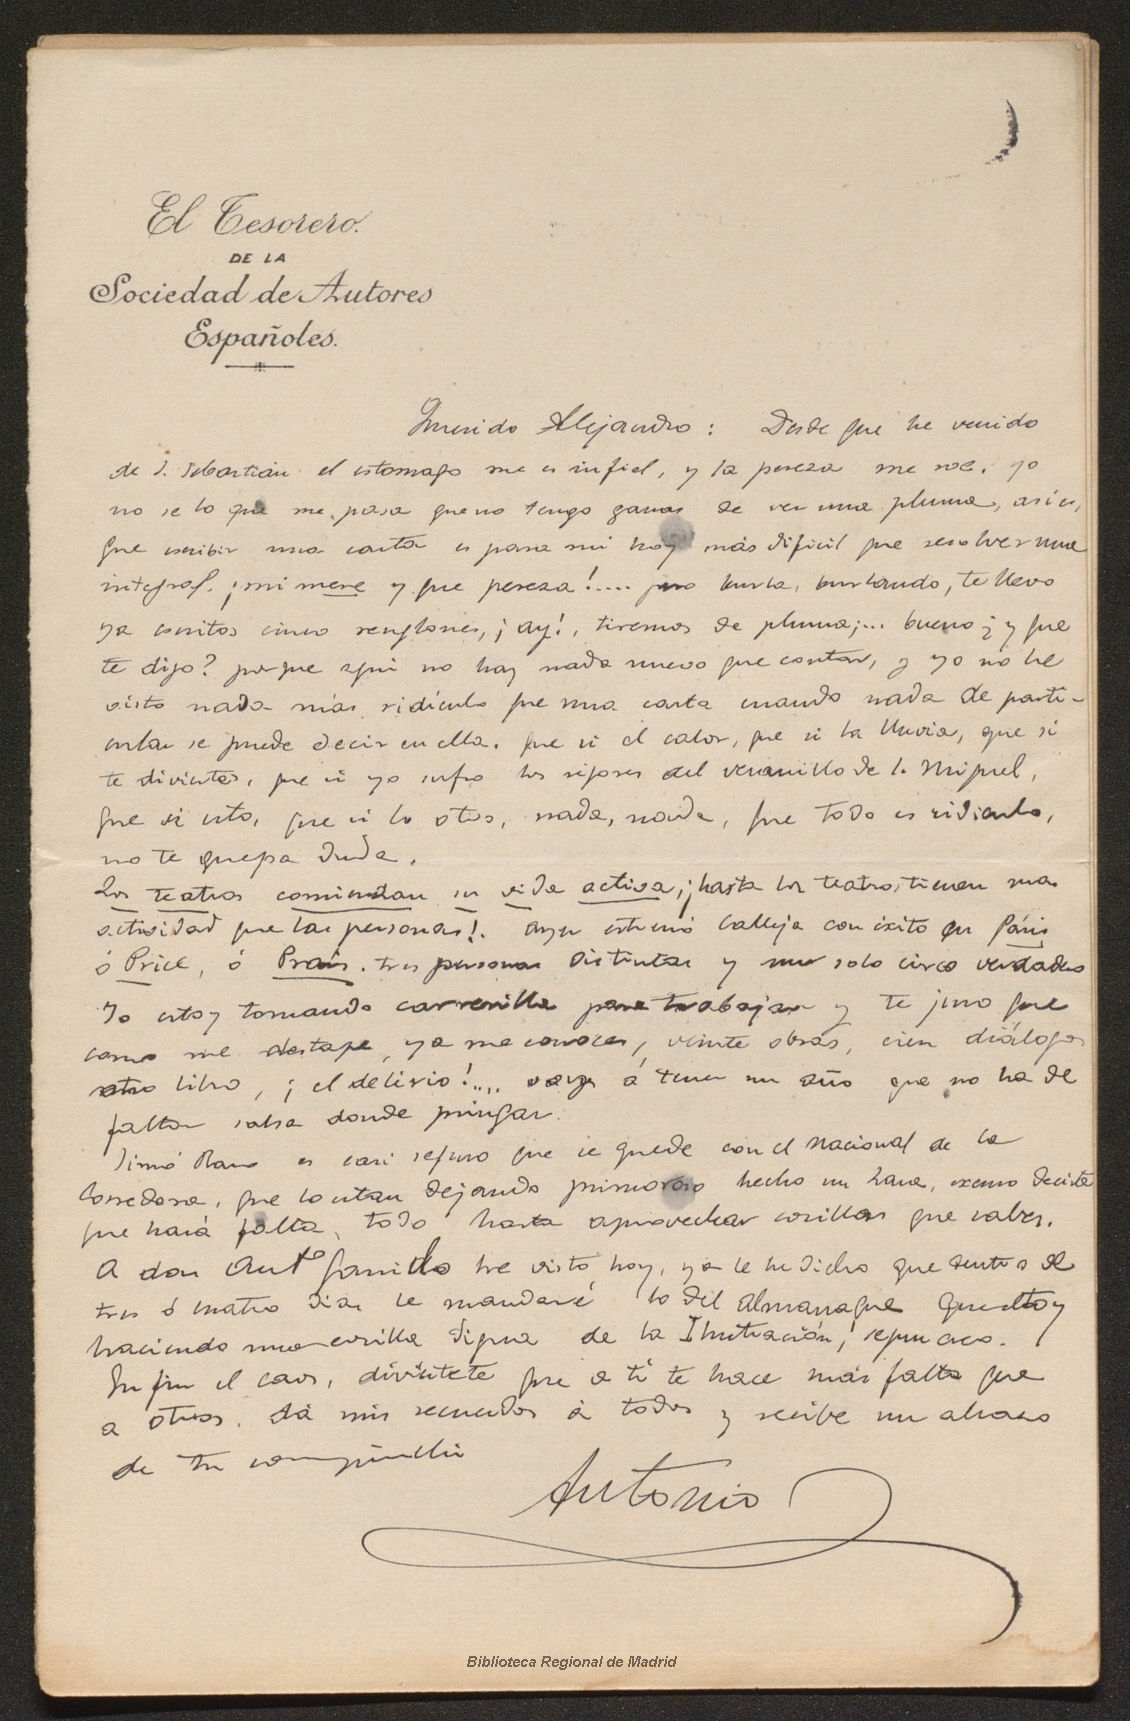 El Tesorero.
DE LA
Sociedad de Autores
Españoles.
Querido Alejandro: Desde que he venido
de S. Sebastián el estomago me es infiel, y la pereza me roe. yo
no se lo que me pasa que no tengo ganas de ver una pluma, asi es,
que escribir una carta es para mi hoy más dificil que resolver una
integral. ¡mi mere y que pereza!.... pero burla, burlando, te llevo
ya escritos cinco renglones, ¡ay!, tiremos de pluma;... bueno ¿y que
te digo? porque aqui no hay nada nuevo que contar, y yo no he
visto nada más ridículo que una carta cuando nada de parti-
cular se puede decir en ella. que si el calor, que si la lluvia, que si
te diviertes, que si yo sufro los rigores del veranillo de S. Miguel,
que si esto, que si lo otro, nada, nada, que todo es ridiculo,
no te quepa duda.
Los teatros comienzan su vida activa, ¡hasta los teatros tienen mas
actividad que las personas!. ayer estrenó Calleja con éxito en Páris
ó Price, ó Prais. tres personas distintas y un solo circo verdadero
Yo estoy tomando carrerilla para trabajar y te juro que
como me destape, ya me conoces, veinte obras, cien diálogos
otro libro, ¡el delirio!.... vaya á tener un año que no ha de
faltar salsa donde pringar.
Simó Raso es casi seguro que se quede con el Nacional de la
Corredera, que lo estan dejando primoroso hecho un Lara, excuso decirte
que hará falta, todo hasta aprovechar cosillas que sabes.
A don Antº Garrido he visto hoy, ya le he dicho que dentro de
tres ó cuatro dias le mandaré lo del Almanaque que estoy
haciendo una cosilla digna de la Ilustración, ¡seguaco.
En fin el caos, diviértete que a tí te hace más falta que
a otros. Dá mis recuerdos á todos y recibe un abrazo
de tu compinche
Antonio
Biblioteca Regional de Madrid